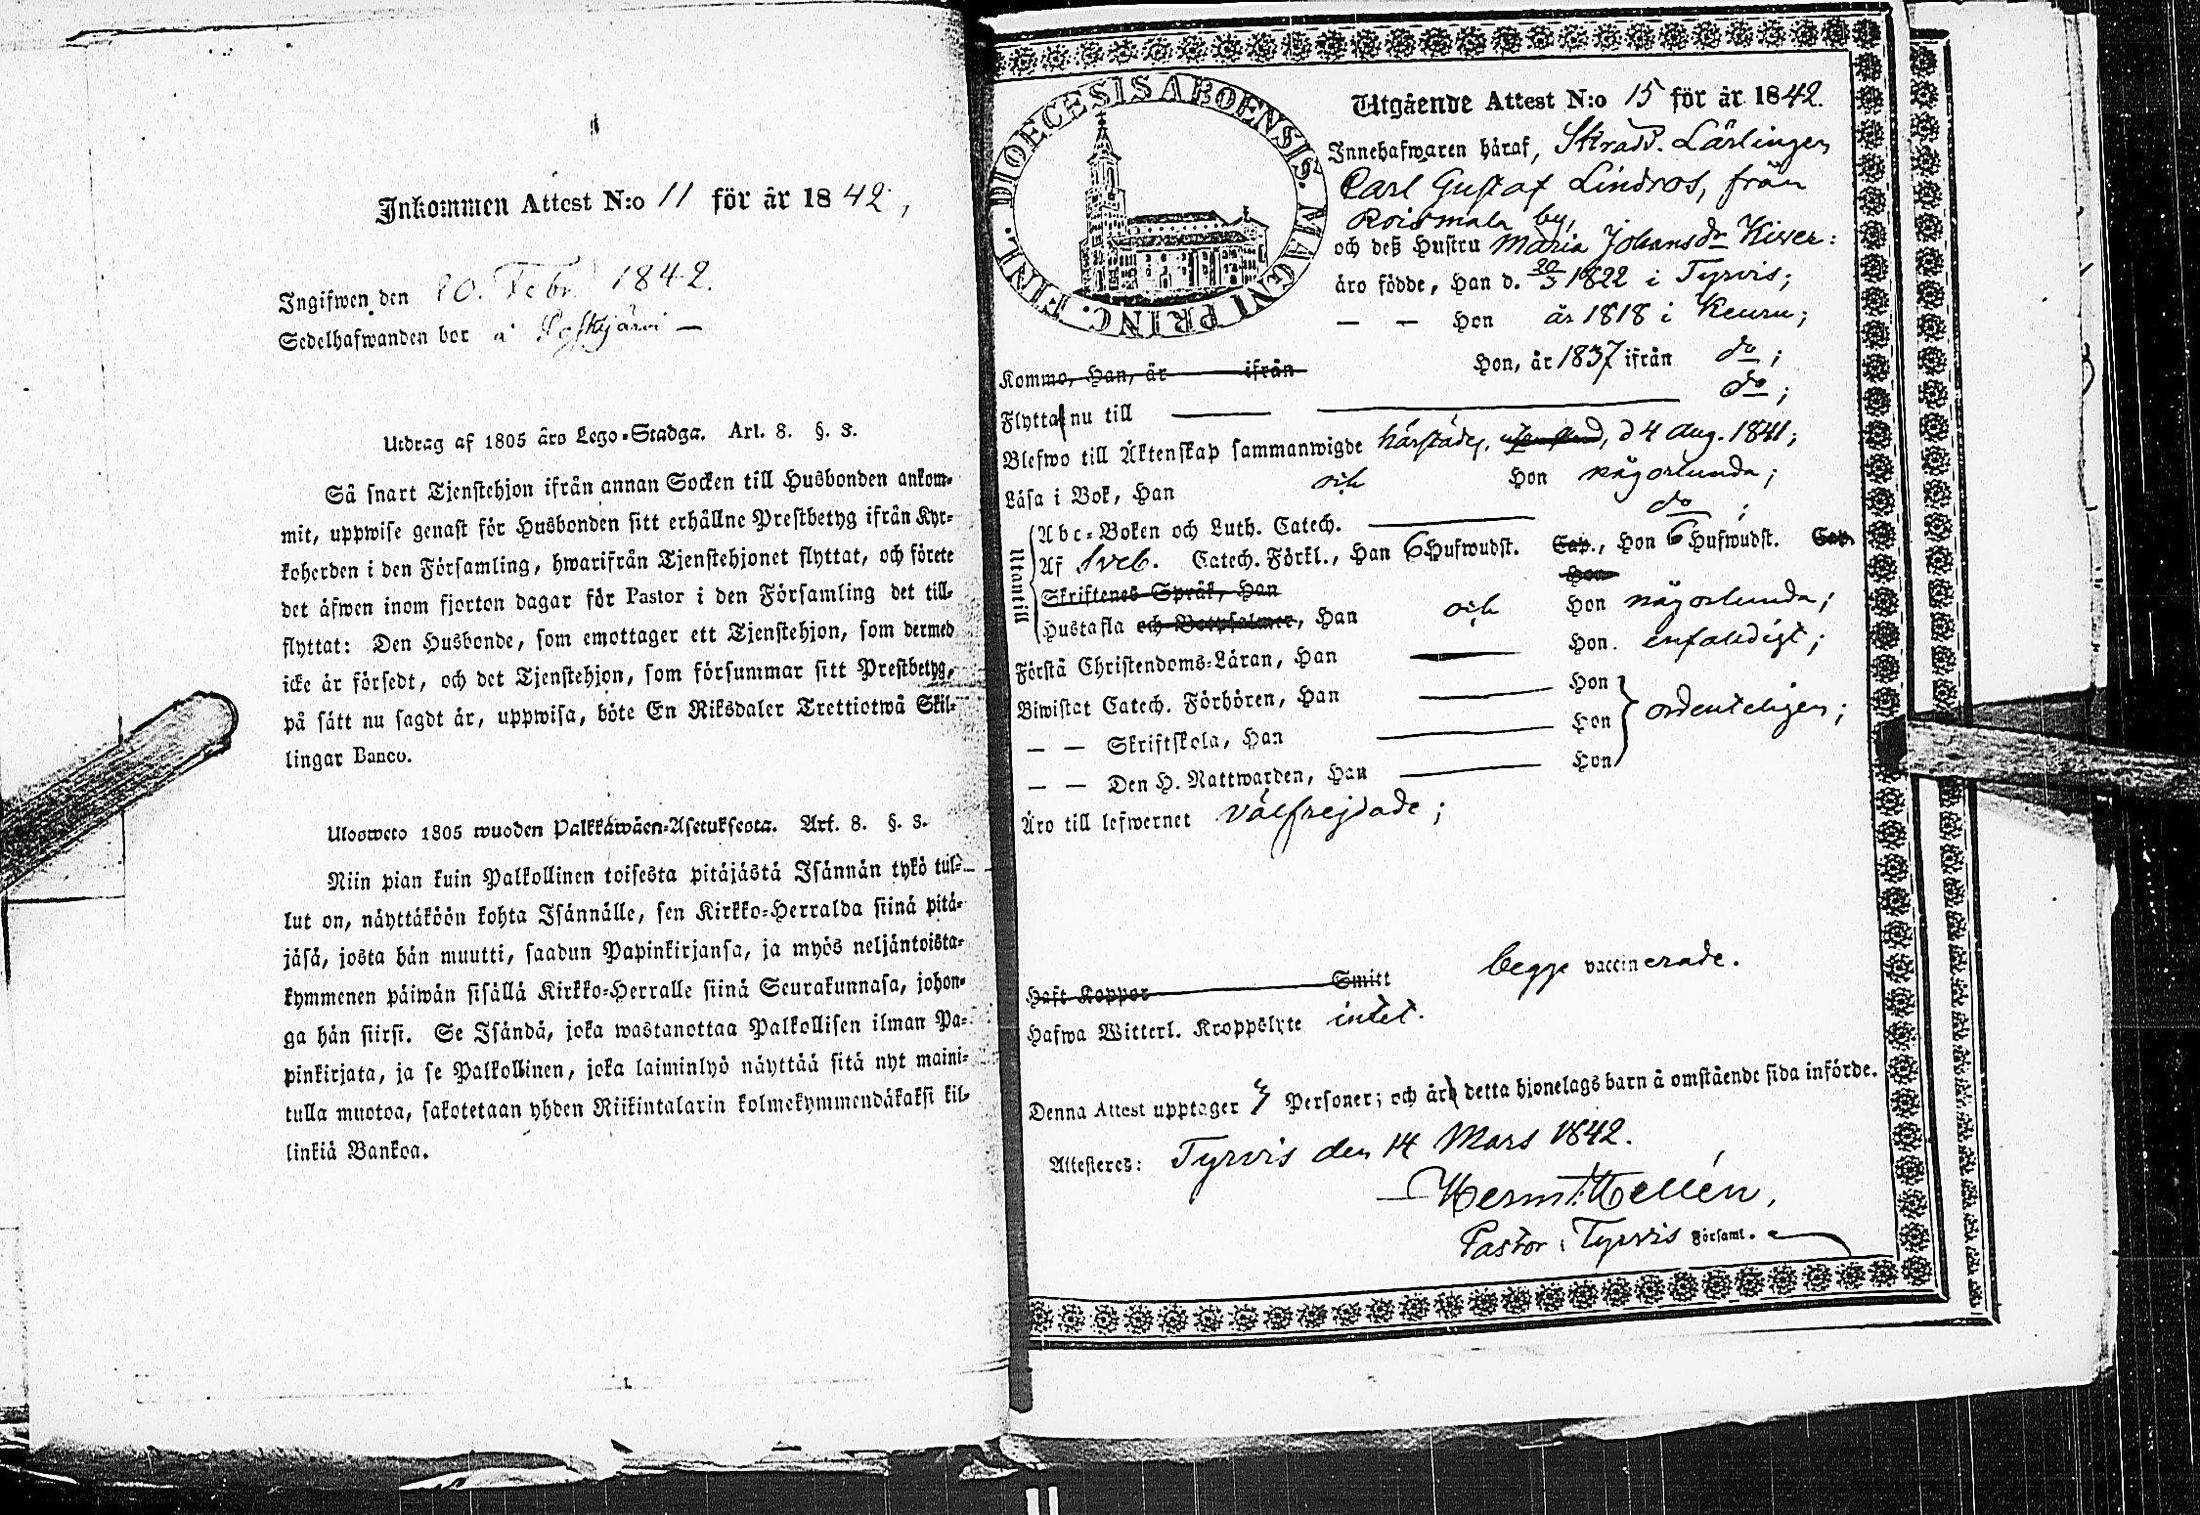 Inkommen Attest N:o 11 för år 1842,
Ingifwen den 20. Febr. 1842.
Sedelhafwanden bor å
Utdrag af 1805 års Lego-Stadga. Art. 8. §. 3.
Så snart Tjenstehjon ifrån annan Socken till Husbonden ankom-
mit, uppwise genast för Husbonden sitt erhållne Prestbetyg ifrån Kyr-
koherden i den Församling, hwarifrån Tjenstehjonet flyttat, och förete
det äfwen inom fjorton dagar för Pastor i den Församling det till-
flyttat: Den Husbonde, som emottager ett Tjenstehjon, som dermed
icke är försedt, och det Tjenstehjon, som försummar sitt Prestbetyg,
på sätt nu sagdt är, uppwisa, böte En Riksdaler Trettiotwå Skil-
lingar Banco.
Ulosweto 1805 wuoden Palkkawäen-Asetuksesta. Art. 8. §. 3.
Niin pian kuin Palkollinen toisesta pitäjästä Isännän tykö tul-
lut on, näyttäköön kohta Isännälle, sen Kirkko-Herralda siinä pitä-
jäsä, josta hän muutti, saadun Papinkirjansa, ja myös neljäntoista-
kymmenen päiwän sisällä Kirkko-Herralle siinä Seurakunnasa, johon-
ga hän siirsi. Se Isändä, joka wastanottaa Palkollisen ilman Pa-
pinkirjata, ja se Palkollinen, joka laiminlyö näyttää sitä nyt maini-
tulla muotoa, sakotetaan yhden Riikintalarin kolmekymmendäkaksi kil-
linkiä Bankoa.
DIOECESIS ABOENSIS. MAGNI PRINC. FINL.
Utgående Attest N:o 15 för år 1842.
Innehafwaren häraf, Skradd. Lärlingen
Carl Gustaf Lindros, från
Roismala by,
och deß Hustru Maria Johansdr Kiver:
äro födde, Han d. 20/3 1822 i Tyrvis;
— — Hon år 1818 i Keuru;
Kommo, Han, år ifrån Hon, år 1837 ifrån do;
Flytta nu till do;
Blefwo till Äktenskap sammanwigde härstädes, d 4 Aug. 1841;
Läsa i Bok, Han och Hon någorlunda;
Abc-Boken och Luth. Catech. do;
Utantill Af Sveb. Catech. Förkl., Han 6 Hufwudst. Cap., Hon 6 Hufwudst. Cap.
Skriftenes Språk, Han Hon
Hustafla och Botpsalmer, Han och Hon någorlunda;
Förstå Christendoms-Läran, Han Hon enfaldigt;
Biwistat Catech. Förhören, Han Hon
— — Skriftskola, Han Hon ordenteligen;
— — Den H. Nattwarden, Han Hon
Äro till lefwernet välfrejdade;
Haft Koppor Smitt begge vaccinerade.
Hafwa Witterl. Kroppslyte intet.
Denna Attest upptager Personer; och äro detta hjonelags barn å omstående sida införde.
Attesteres: Tyrvis den 14 Mars 1842.
Herm. Hellén,
Pastor i Tyrvis Församl.